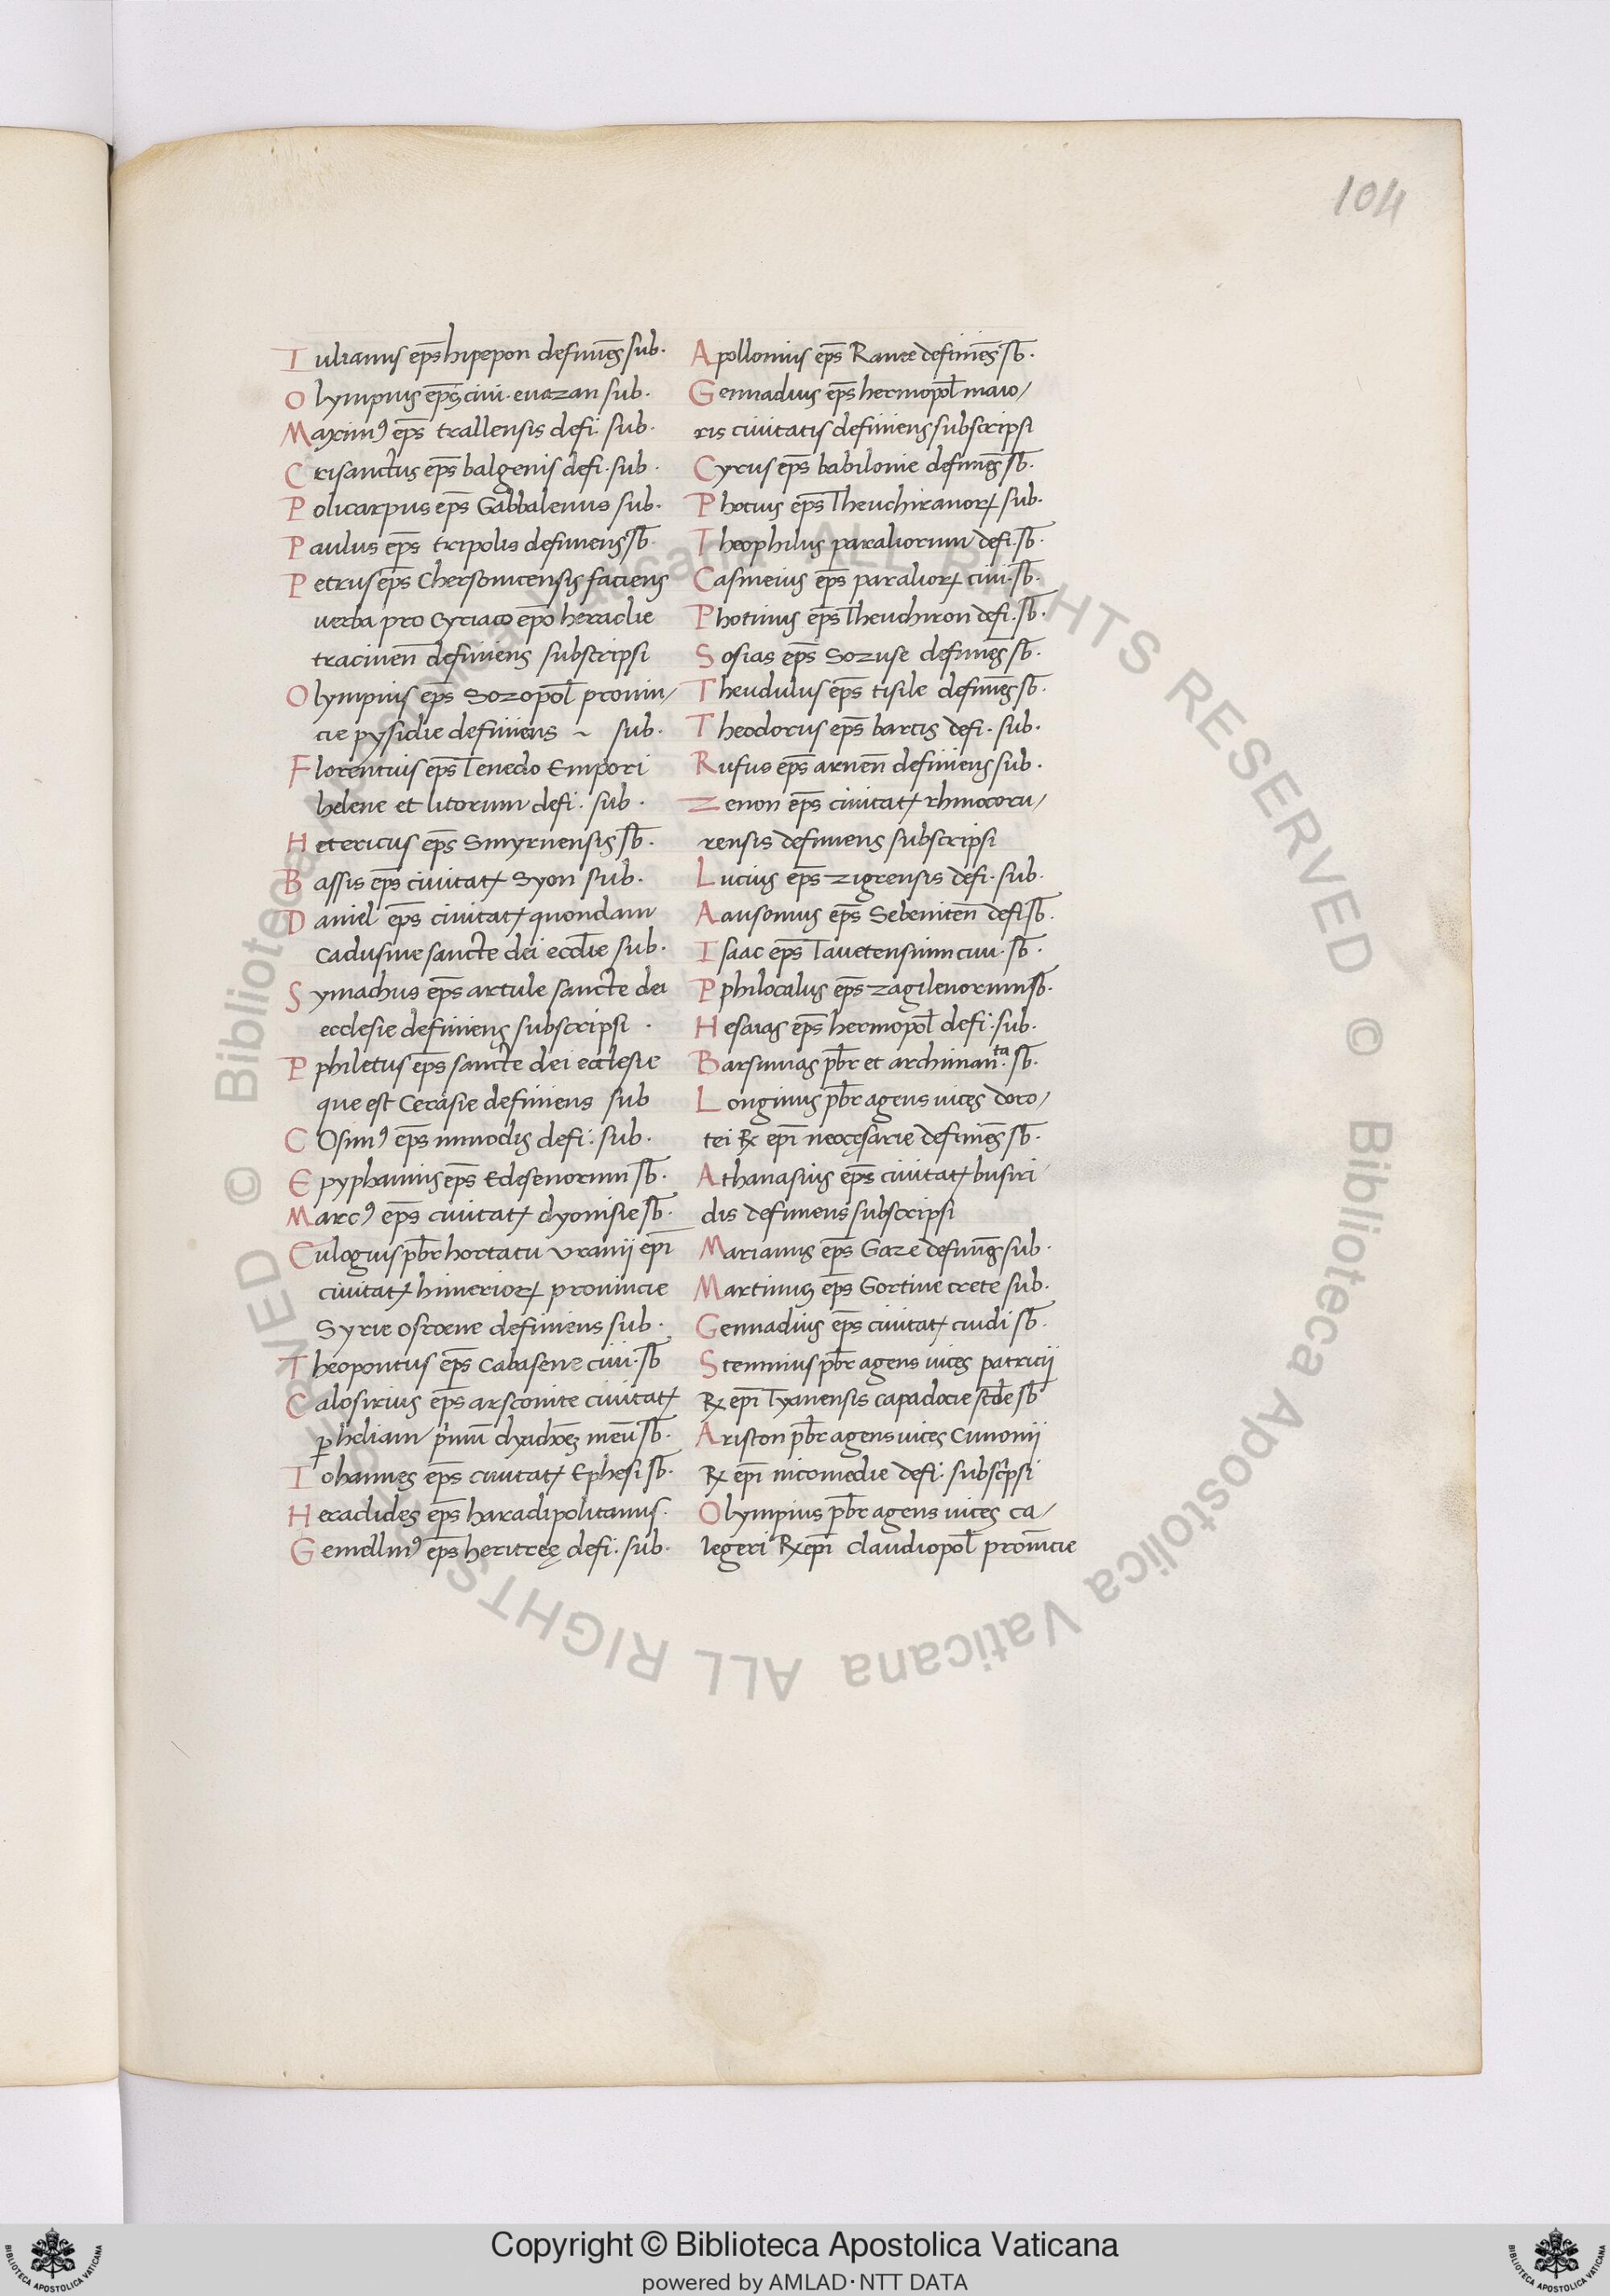 104
Iulianus ep̄s hipepon definiēs sub.
Olympius ep̄s ciui. euazan sub.
Maximꝰ ep̄s trallensis defi. sub.
Crisanctus ep̄s balgenis defi. sub.
Policarpus ep̄s Gabbalenus sub.
Paulus ep̄s tripolis definiens sb̄.
Petrus ep̄s Chersonicensis faciens
uerba pro Cyriaco ep̄o heraclie
tracinen̄ definiens subscripsi
Olympius ep̄s Sozopol̄ prouin/
cie pysidie definiens ~ sub.
Florentius ep̄s Tenedo Empori
helene et litorum defi. sub.
Hetericus ep̄s Smyrnensis sb̄.
Bassis ep̄s ciuitatꝭ Syon sub.
Daniel ep̄s ciuitatꝭ quondam
Cadusine sancte dei eccl̄ie sub.
Symachus ep̄s artule sancte dei
ecclesie definiens subscripsi.
Pphiletus ep̄s sancte dei ecclesie
que est Cerasie definiens sub
COsimꝰ ep̄s inmodis defi. sub.
Epyphanius ep̄s Edesenorum sb̄.
Marcꝰ ep̄s ciuitatꝭ dyonisie sb̄.
Eulogius pb̄r hortatu Vranii ep̄i
ciuitatꝭ himeriorꝝ prouincie
Syrie osroene definiens sub.
Theopontus ep̄s Cabasene ciui. sb̄
Calosirius ep̄s arsconite ciuitatꝭ
Iohannes ep̄s ciuitatꝭ Ephesi sb̄.
Heraclides ep̄s haradipolitanus.
Gemellinꝰ ep̄s heritreę defi. sub.
Apollonius ep̄s Rance definiēs sb̄.
Gennadius ep̄s hermopol̄ maio/
ris ciuitatis definiens subscripsi
Cyrus ep̄s babilonie definiēs sb̄.
Photius ep̄s Theuchiranorꝝ sub.
Theophilus paraliorum defi. sb̄.
Casineius ep̄s paraliorꝝ ciui. sb̄.
Photinus ep̄s Theuchiron defi. sb̄.
Sosias ep̄s Sozuse definiēs sb̄.
Theudulus ep̄s tisile definiēs sb̄.
Theodorus ep̄s barcis defi. sub.
Rufus ep̄s arnen̄ definiens sub.
Zenon ep̄s ciuitatꝭ rhinocoru/
rensis definiens subscripsi
Lucius ep̄s zigrensis defi. sub.
Aausonius ep̄s Sebeniten̄ defi sb̄.
Isaac ep̄s Tauetensium ciui. sb̄.
Pphilocalus ep̄s zagilenorum sb̄.
Hesaias ep̄s hermopol̄ defi. sub.
Barsumas pb̄r et archimanᵗᵃ. sb̄.
Longinus pb̄r agens uices doro/
tei ℞ ep̄i neocęsarie definiēs sb̄.
Athanasius ep̄s ciuitatꝭ busiri/
dis definiens subscripsi
Marianus ep̄s Gaze definiēs sub.
Martinus ep̄s Gortine crete sub.
Gennadius ep̄s ciuitatꝭ cnidi sb̄.
Stemnius pb̄r agens uices patricij
℞ ep̄i Tyanensis capadocie sc̄de sb̄
Ariston pb̄r agens uices Cunonij
℞ ep̄i nicomedie defi. subsc̄psi
Olympius pb̄r agens uices ca/
legeri ℞ ep̄i claudiopol̄ prouīcie
Copyright © Biblioteca Apostolica Vaticana
powered by AMLAD·NTT DATA
© Biblioteca Apostolica Vaticana ALL RIGHTS RESERVED © Biblioteca Apostolica Vaticana ALL RIGHTS RESERVED